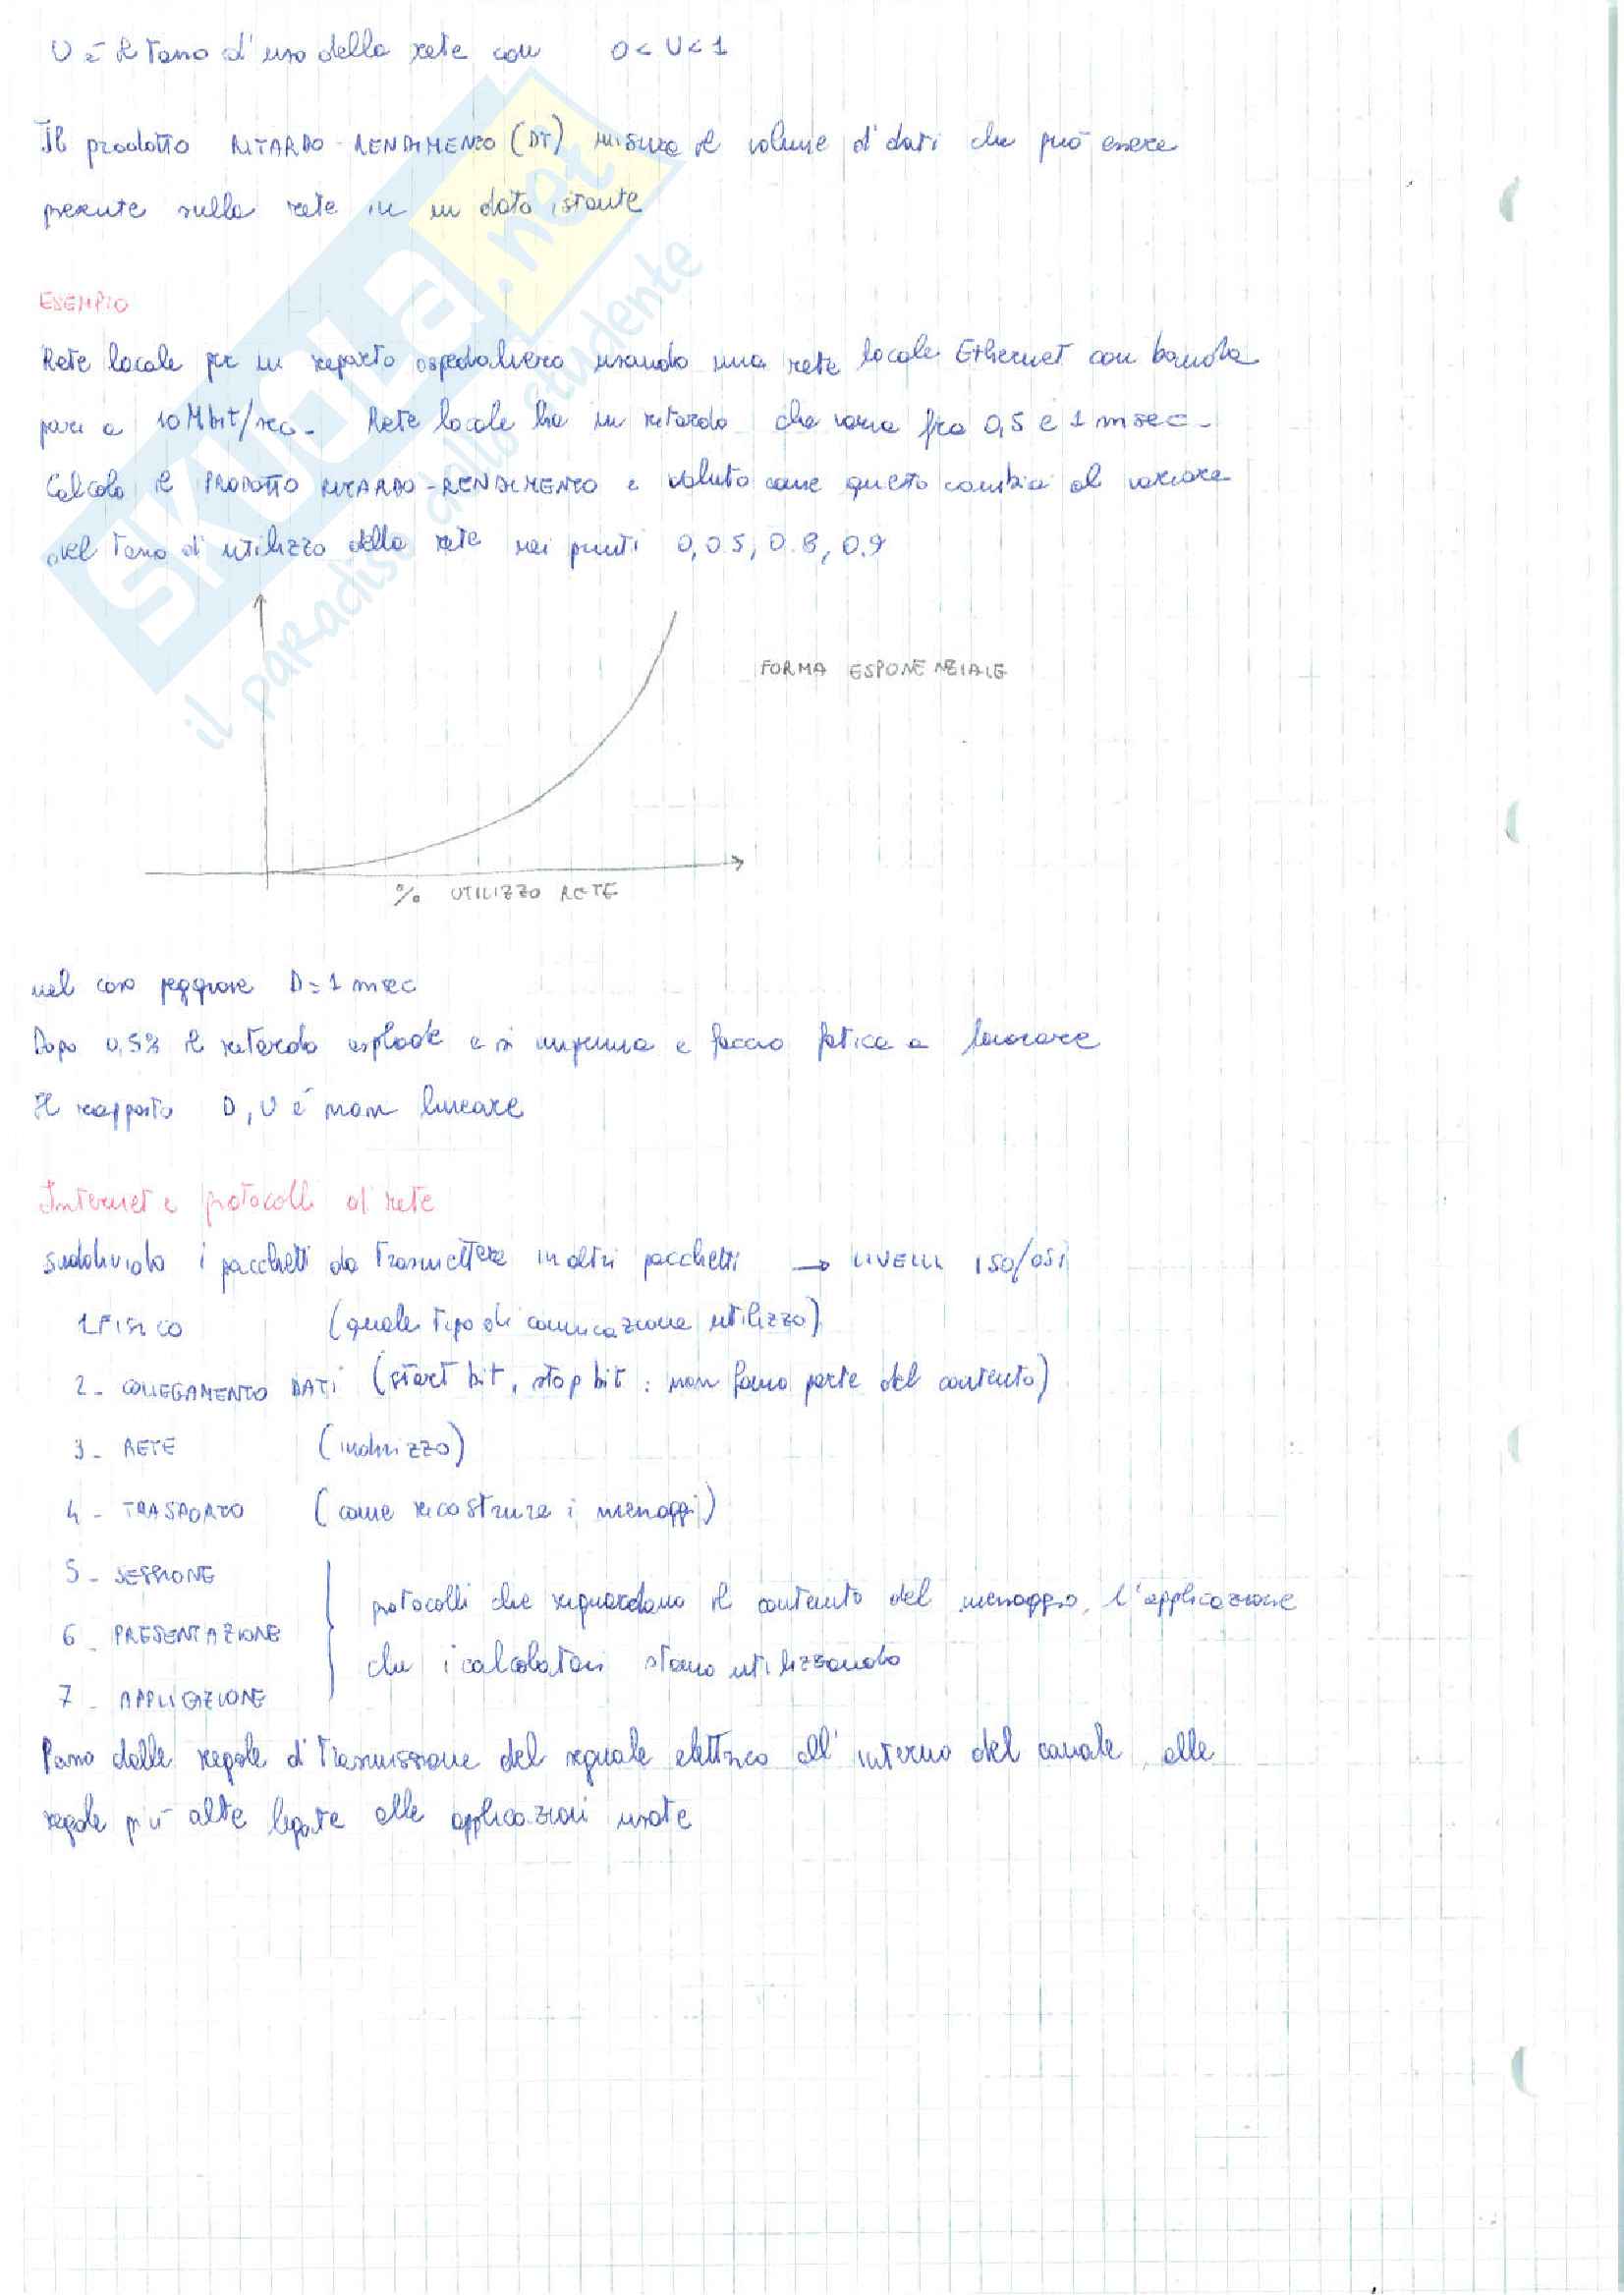 U è il tasso d'uso della rete con 0 < U < 1
Il prodotto RITARDO-RENDIMENTO (DT) misura il volume di dati che può essere
presente sulla rete in un dato istante
ESEMPIO
Rete locale per un reparto ospedaliero usando una rete locale Ethernet con banda
pari a 10 Mbit/sec. Rete locale ha un ritardo che varia fra 0,5 e 1 msec.
Calcolo il PRODOTTO RITARDO-RENDIMENTO e valuto come questo cambia al variare
del tasso di utilizzo della rete nei punti 0, 0.5, 0.8, 0.9
FORMA ESPONENZIALE
% UTILIZZO RETE
nel caso peggiore D = 1 msec
Dopo 0,5% il ritardo esplode e si impenna e faccio fatica a lavorare
Il rapporto D, U è non lineare
Internet e protocolli di rete
suddivido i pacchetti da trasmettere in altri pacchetti → LIVELLI ISO/OSI
1 FISICO (quale tipo di comunicazione utilizzo)
2- COLLEGAMENTO DATI (start bit, stop bit : non fanno parte del contenuto)
3- RETE (indirizzo)
4- TRASPORTO (come ricostruire i messaggi)
5- SESSIONE
6- PRESENTAZIONE
7- APPLICAZIONE
protocolli che riguardano il contenuto del messaggio, l'applicazione
che i calcolatori stanno utilizzando
Passo dalle regole di trasmissione del segnale elettrico all'interno del canale, alle
regole più alte legate alle applicazioni usate
SKUOLA.net
il paradiso dello studente